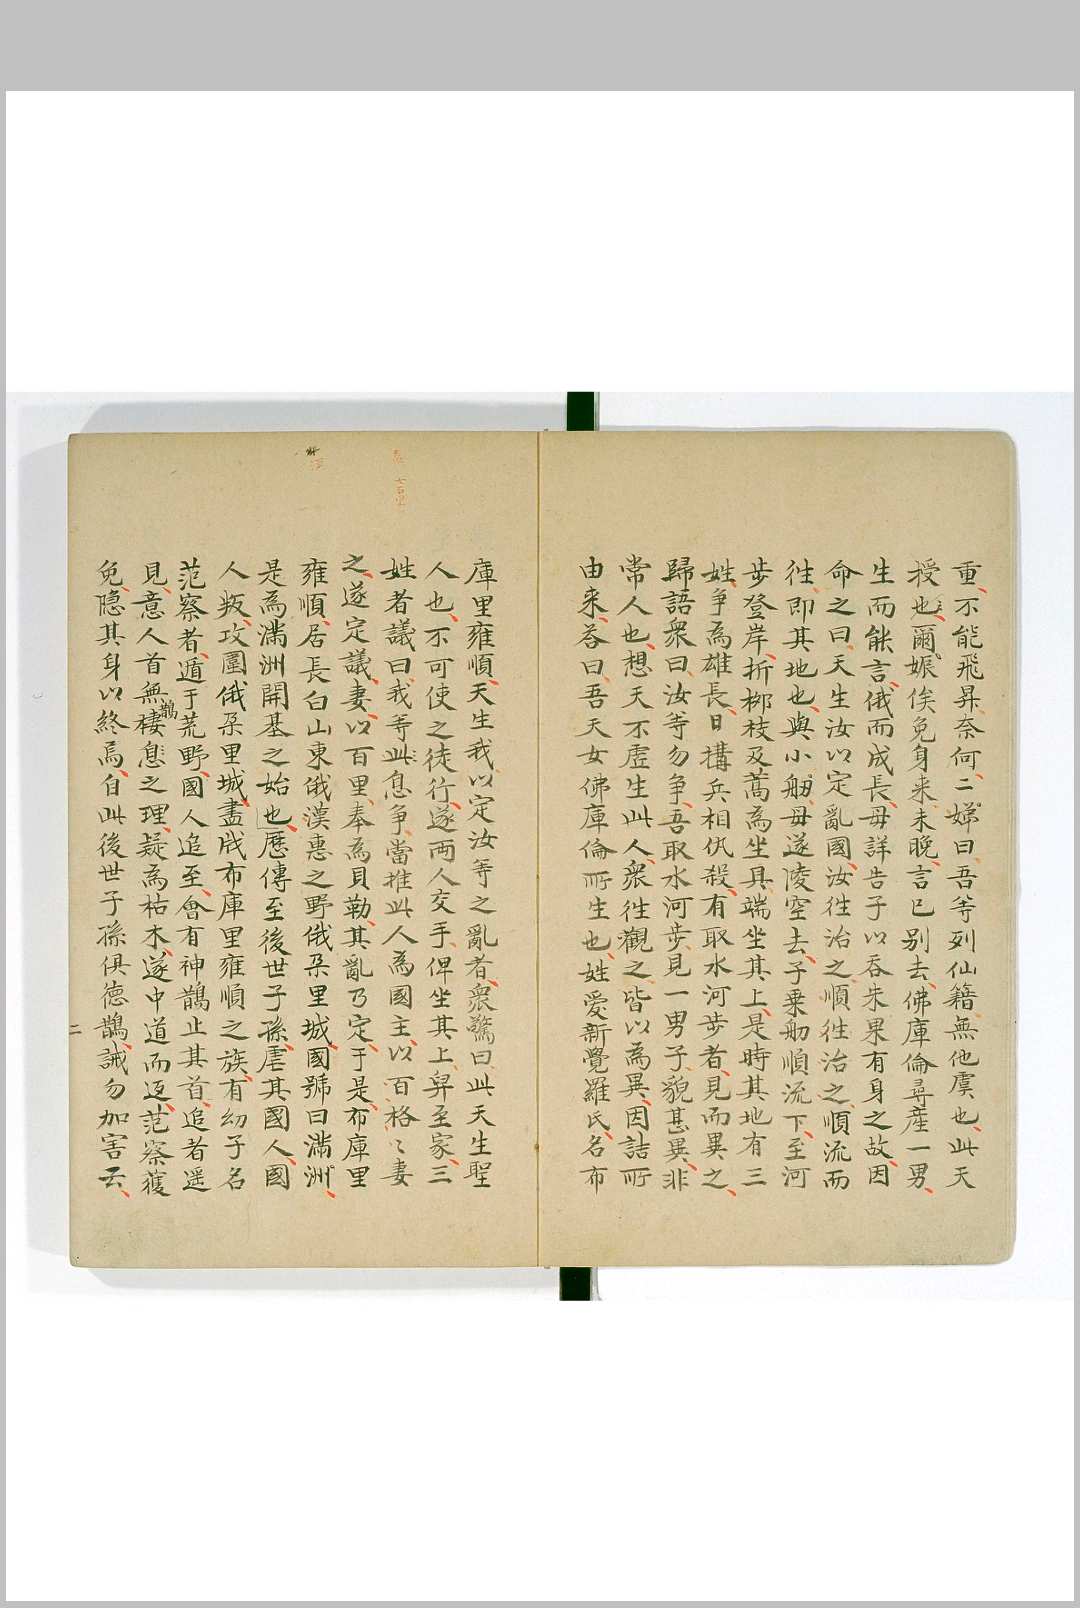 重不能飛昇奈何二娣曰吾等列仙籍無他虞也此天
授也爾娠俟免身来未晚言已别去佛庫倫尋産一男
生而能言俄而成長母詳告子以吞朱果有身之故因
命之曰天生汝以定亂國汝徃治之順徃治之順流而
徃即其地也與小舠母遂陵空去子乗舠順流下至河
步登岸折桞枝及蒿為坐具端坐其上是時其地有三
姓争為雄長日搆兵相仇殺有取水河步者見而異之
歸語衆曰汝等勿争吾取水河步見一男子貌甚異非
常人也想天不虚生此人衆徃觀之皆以為異因詰所
由来荅曰吾天女佛庫倫所生也姓愛新覺羅氏名布
庫里雍順天生我以定汝等之亂者衆驚曰此天生聖
人也不可使之徒行遂両人交手俾坐其上舁至家三
姓者議曰我等此息争當推此人為國主以百格〻妻
之遂定議妻以百里奉為貝勒其亂乃定于是布庫里
雍順居長白山東俄漠惠之野俄朶里城國號曰滿洲
是為滿洲開基之始也歴傳至後世子孫虐其國人國
人叛攻圍俄朶里城盡戕布庫里雍順之族有㓜子名
范察者遁于荒野國人追至會有神鵲止其首追者遥
見意人首無鵲棲息之理疑為枯木遂中道而返范察獲
免隠其身以終焉自此後世子孫俱德鵲誡勿加害云
二